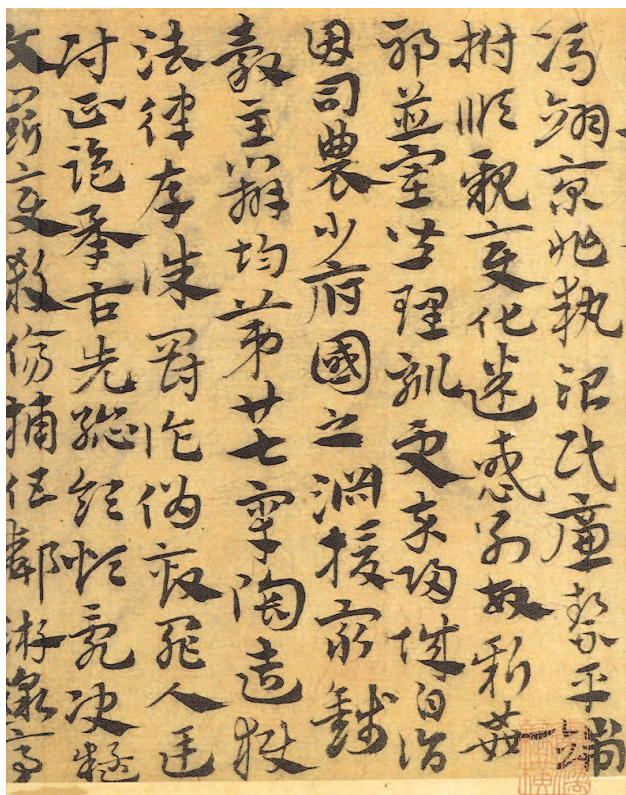 馮翊京兆執治民廉絜平端
拊順親變化迷惑別故新姦
邪並塞皆理馴更卒歸誠自詣
因司農少府國之淵援衆錢
穀主辨均第廿七睪陶造獄
法律存誅罰詐偽劾罪人廷
尉正詭承古先總領煩亂決疑
文鬬變殺傷捕伍鄰游徼亭